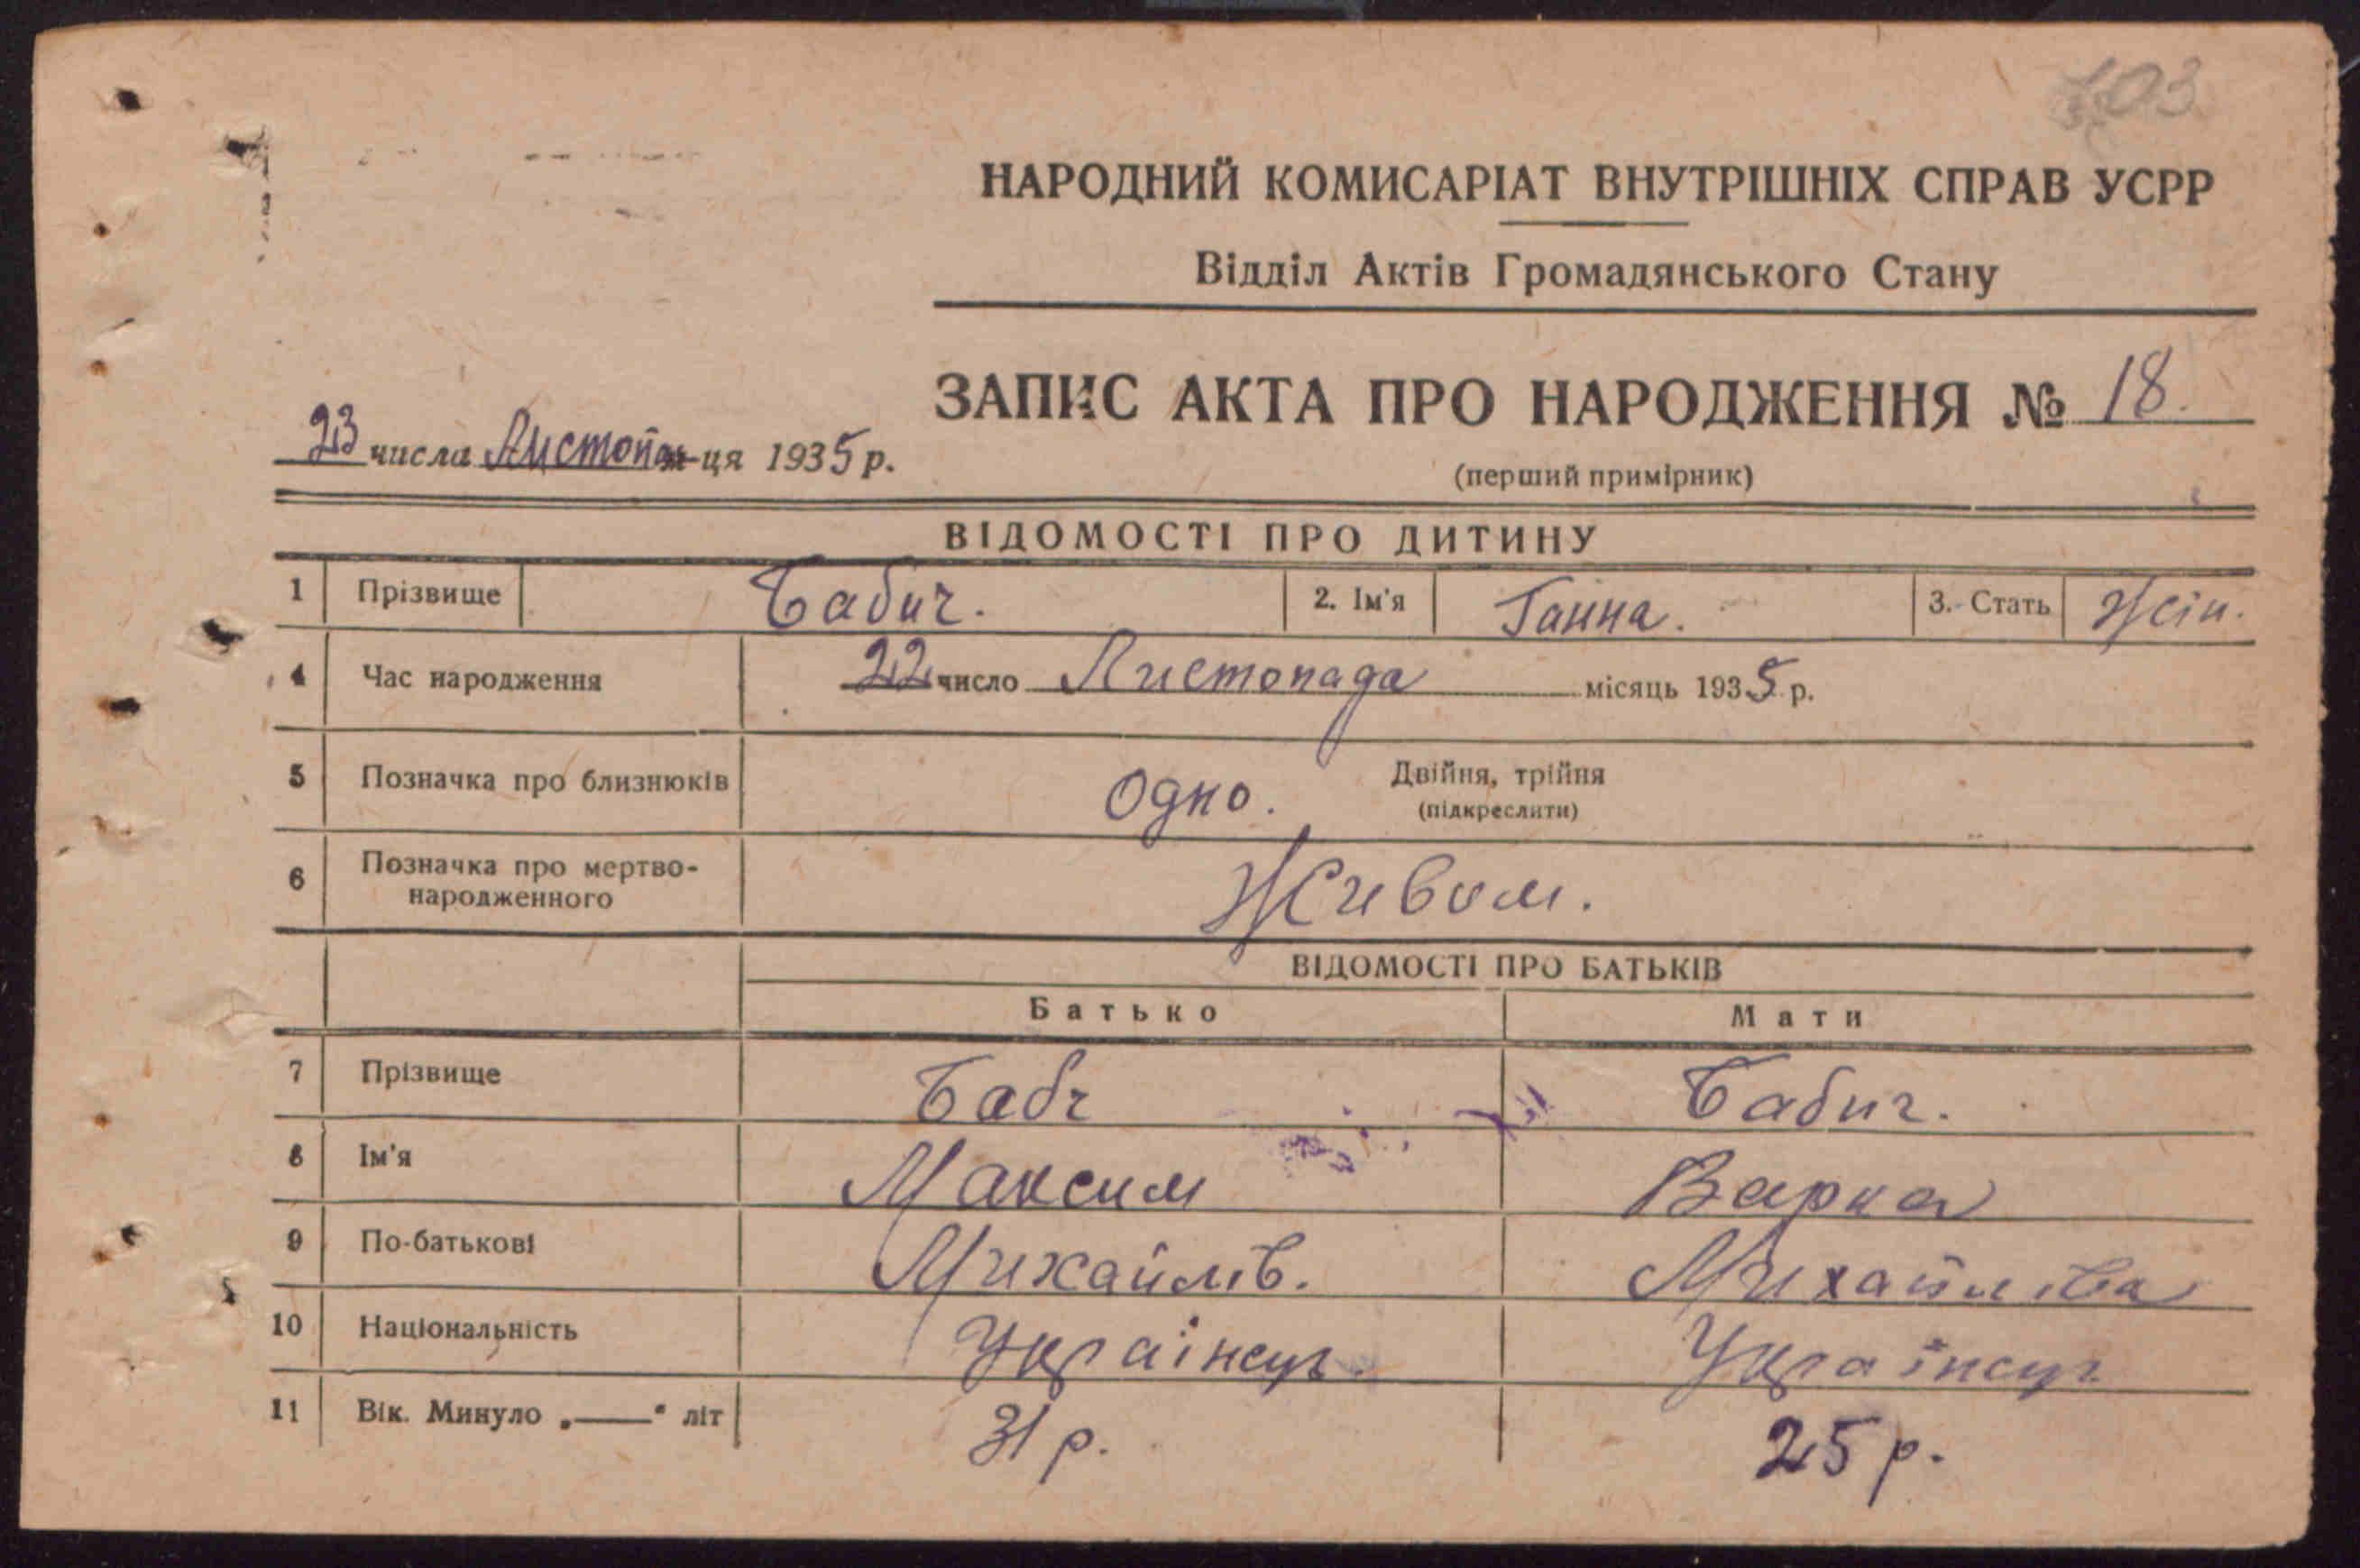 403
НАРОДНИЙ КОМИСАРІАТ ВНУТРІШНІХ СПРАВ УСРР
Відділ Актів Громадянського Стану
ЗАПИС АКТА ПРО НАРОДЖЕННЯ № 18.
23 числа Листопа-ця 1935 р.
(перший примірник)
ВІДОМОСТІ ПРО ДИТИНУ
1 Прізвище Бабич. 2. Ім'я Ганна. 3. Стать Жін.
4 Час народження 22 число Листопада місяць 1935 р.
5 Позначка про близнюків Одно. Двійня, трійня
(підкреслити)
6 Позначка про мертво-
народженного Живом.
ВІДОМОСТІ ПРО БАТЬКІВ
Батько Мати
7 Прізвище Бабч Бабич.
8 Ім'я Максим Варка
9 По-батькові Михайлів. Михайлівна
10 Національність Українець Українець
11 Вік. Минуло „——“ літ 31 р. 25 р.